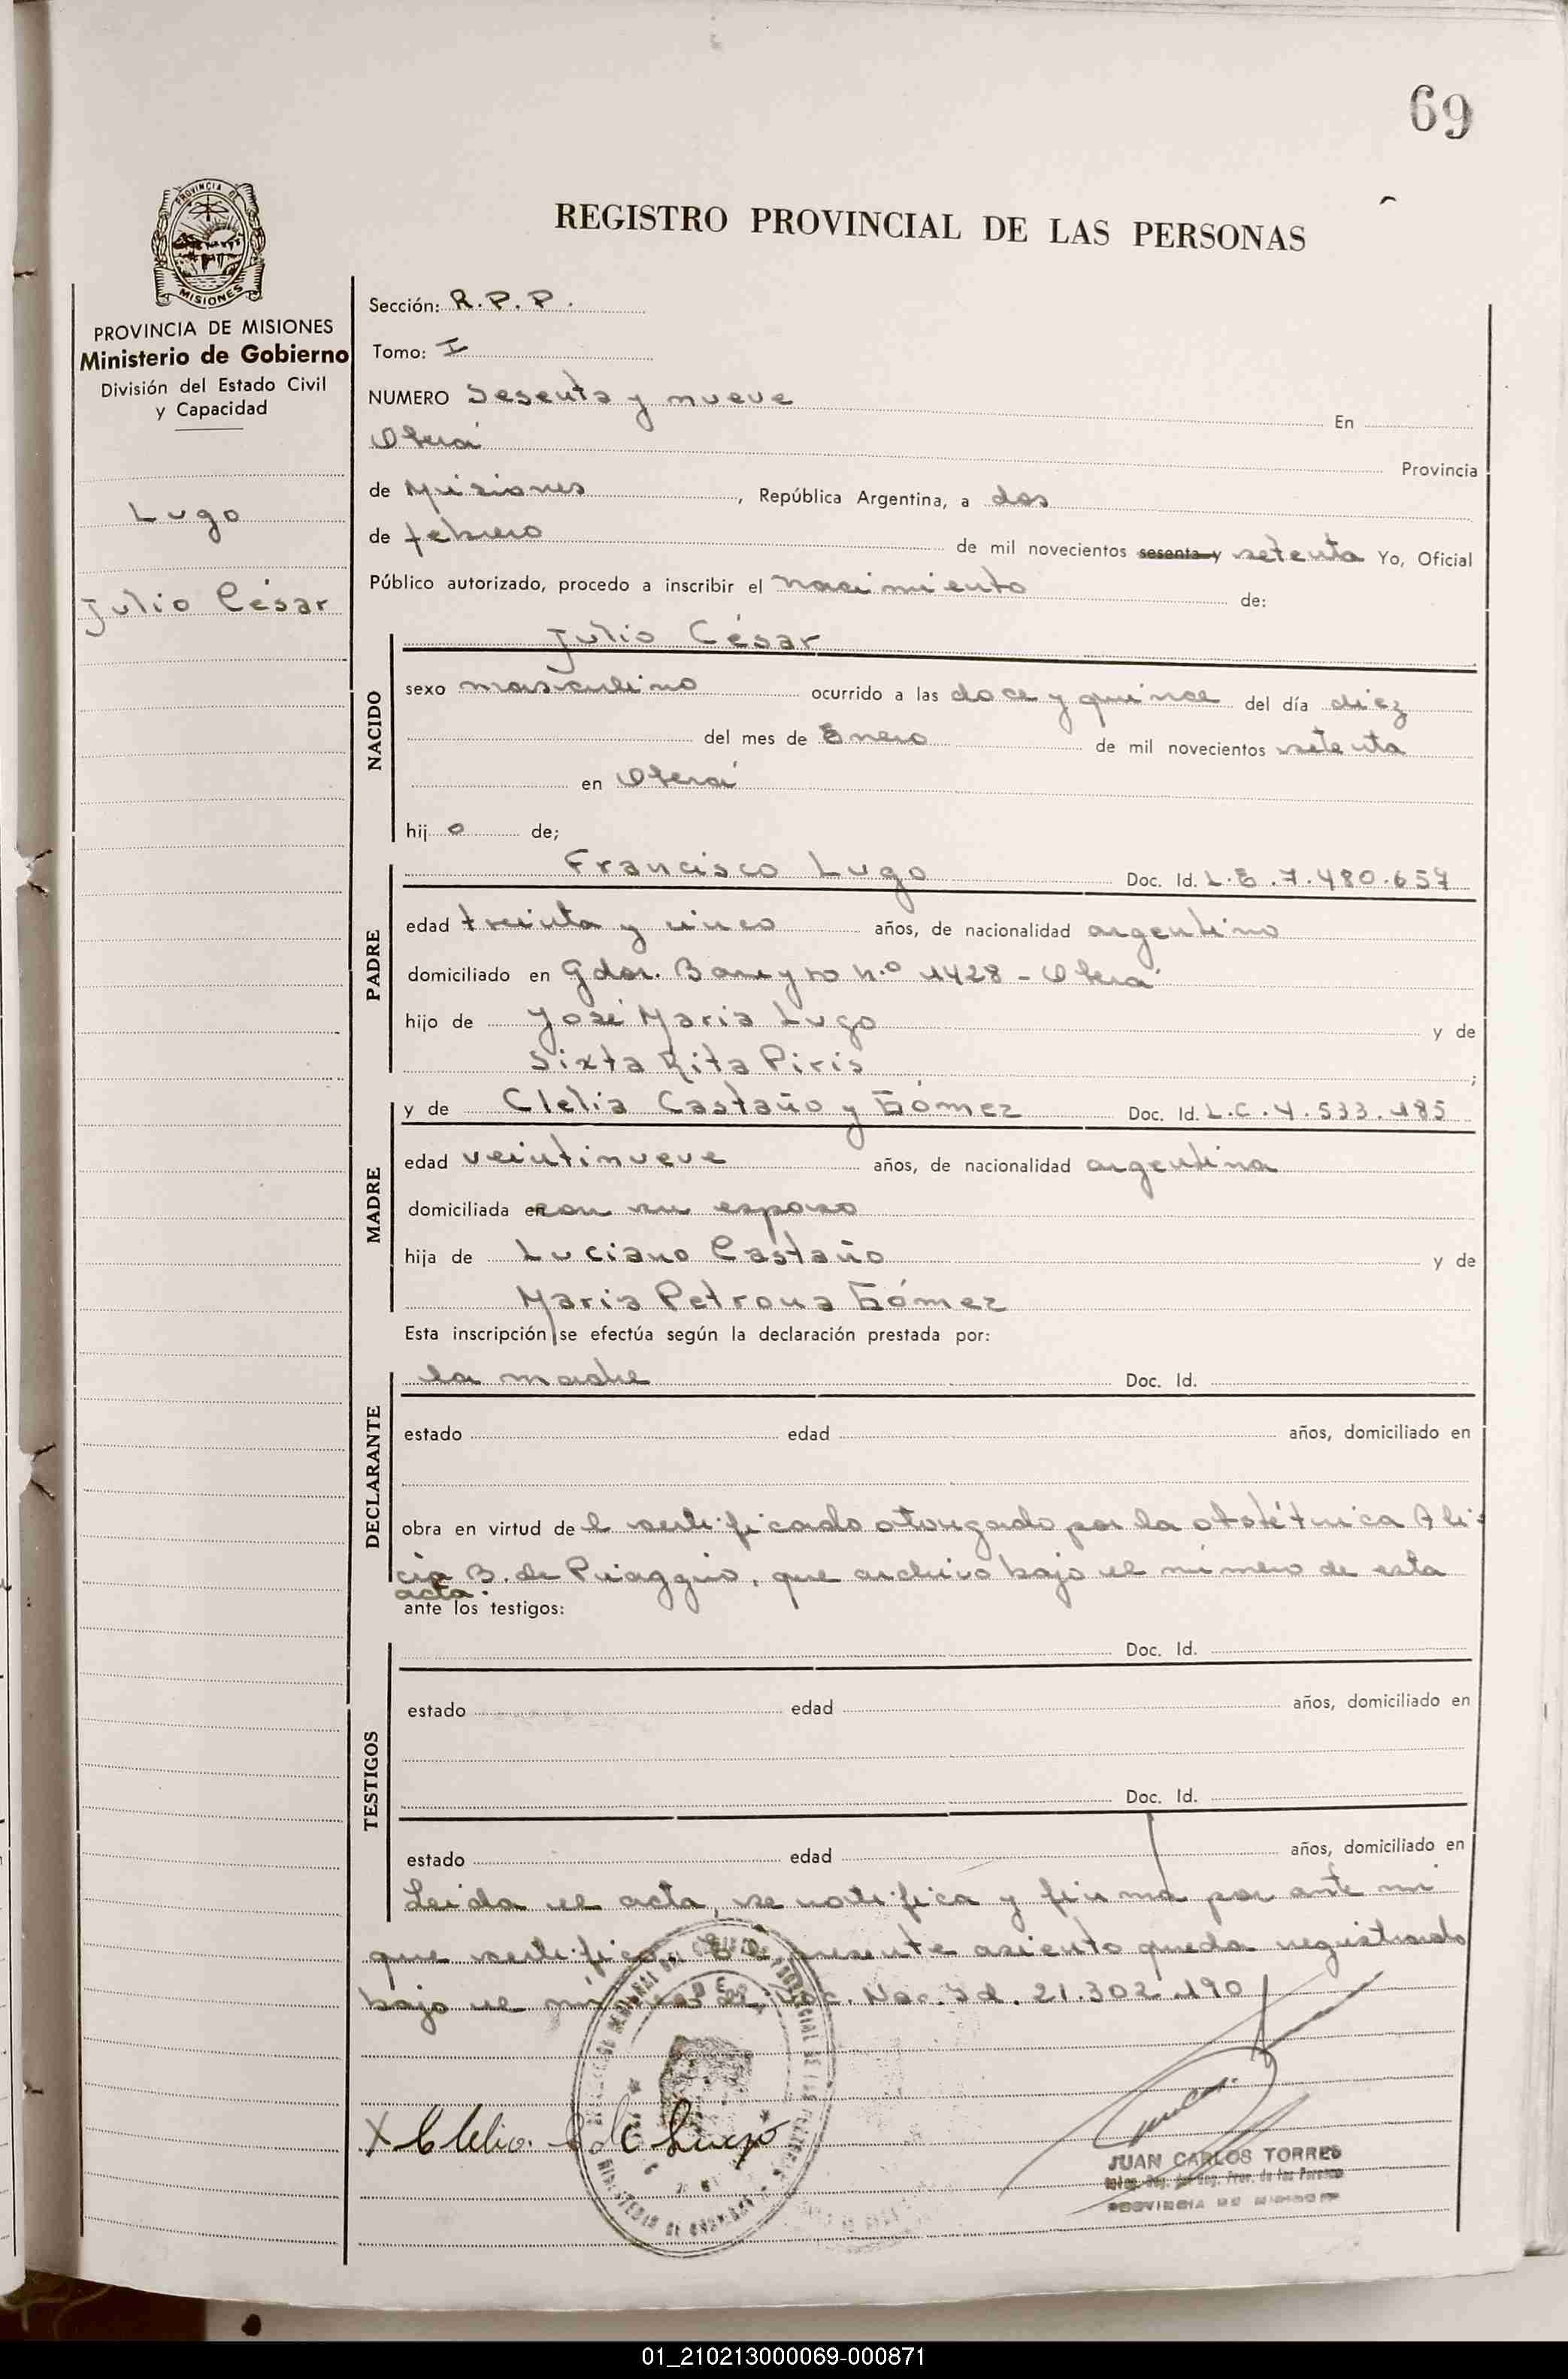 69
PROVINCIA DE
MISIONES
REGISTRO PROVINCIAL DE LAS PERSONAS
PROVINCIA DE MISIONES
Ministerio de Gobierno
División del Estado Civil
y Capacidad
Lugo
Julio César
Sección: R.P.P.
Tomo: I
NUMERO Sesenta y nueve En
Oberá Provincia
de Misiones, República Argentina, a dos
de febrero de mil novecientos sesenta y setenta Yo, Oficial
Público autorizado, procedo a inscribir el nacimiento de:
Julio César
NACIDO
sexo masculino ocurrido a las doce y quince del día diez
del mes de Enero de mil novecientos setenta
en Oberá
hijo de;
PADRE
Francisco Lugo Doc. Id. L.E.7.480.657
edad treinta y cinco años, de nacionalidad argentino
domiciliado en Gdor. Barreyro N.º 1428 - Oberá
hijo de José Maria Lugo y de
Sixta Rita Piris ;
MADRE
y de Clelia Castaño y Gómez Doc. Id. L.C.4.533.185
edad veintinueve años, de nacionalidad argentina
domiciliada en con su esposo
hija de Luciano Castaño y de
Maria Petrona Gómez
Esta inscripción se efectúa según la declaración prestada por:
DECLARANTE
la madre Doc. Id.
estado edad años, domiciliado en
obra en virtud del certificado otorgado por la obstétrica Ali-
cia B. de Piaggio, que archivo bajo el número de esta
acta.
ante los testigos:
TESTIGOS
Doc. Id.
estado edad años, domiciliado en
Doc. Id.
estado edad años, domiciliado en
Leida el acta, se notifica y firma por ante mi
que certifico. El presente asiento queda registrado
bajo el número de Doc. Nac. Id. 21.302.190
X Clelia C de Lugo
JUAN CARLOS TORRES
PROVINCIA DE MISIONES
01_210213000069-000871